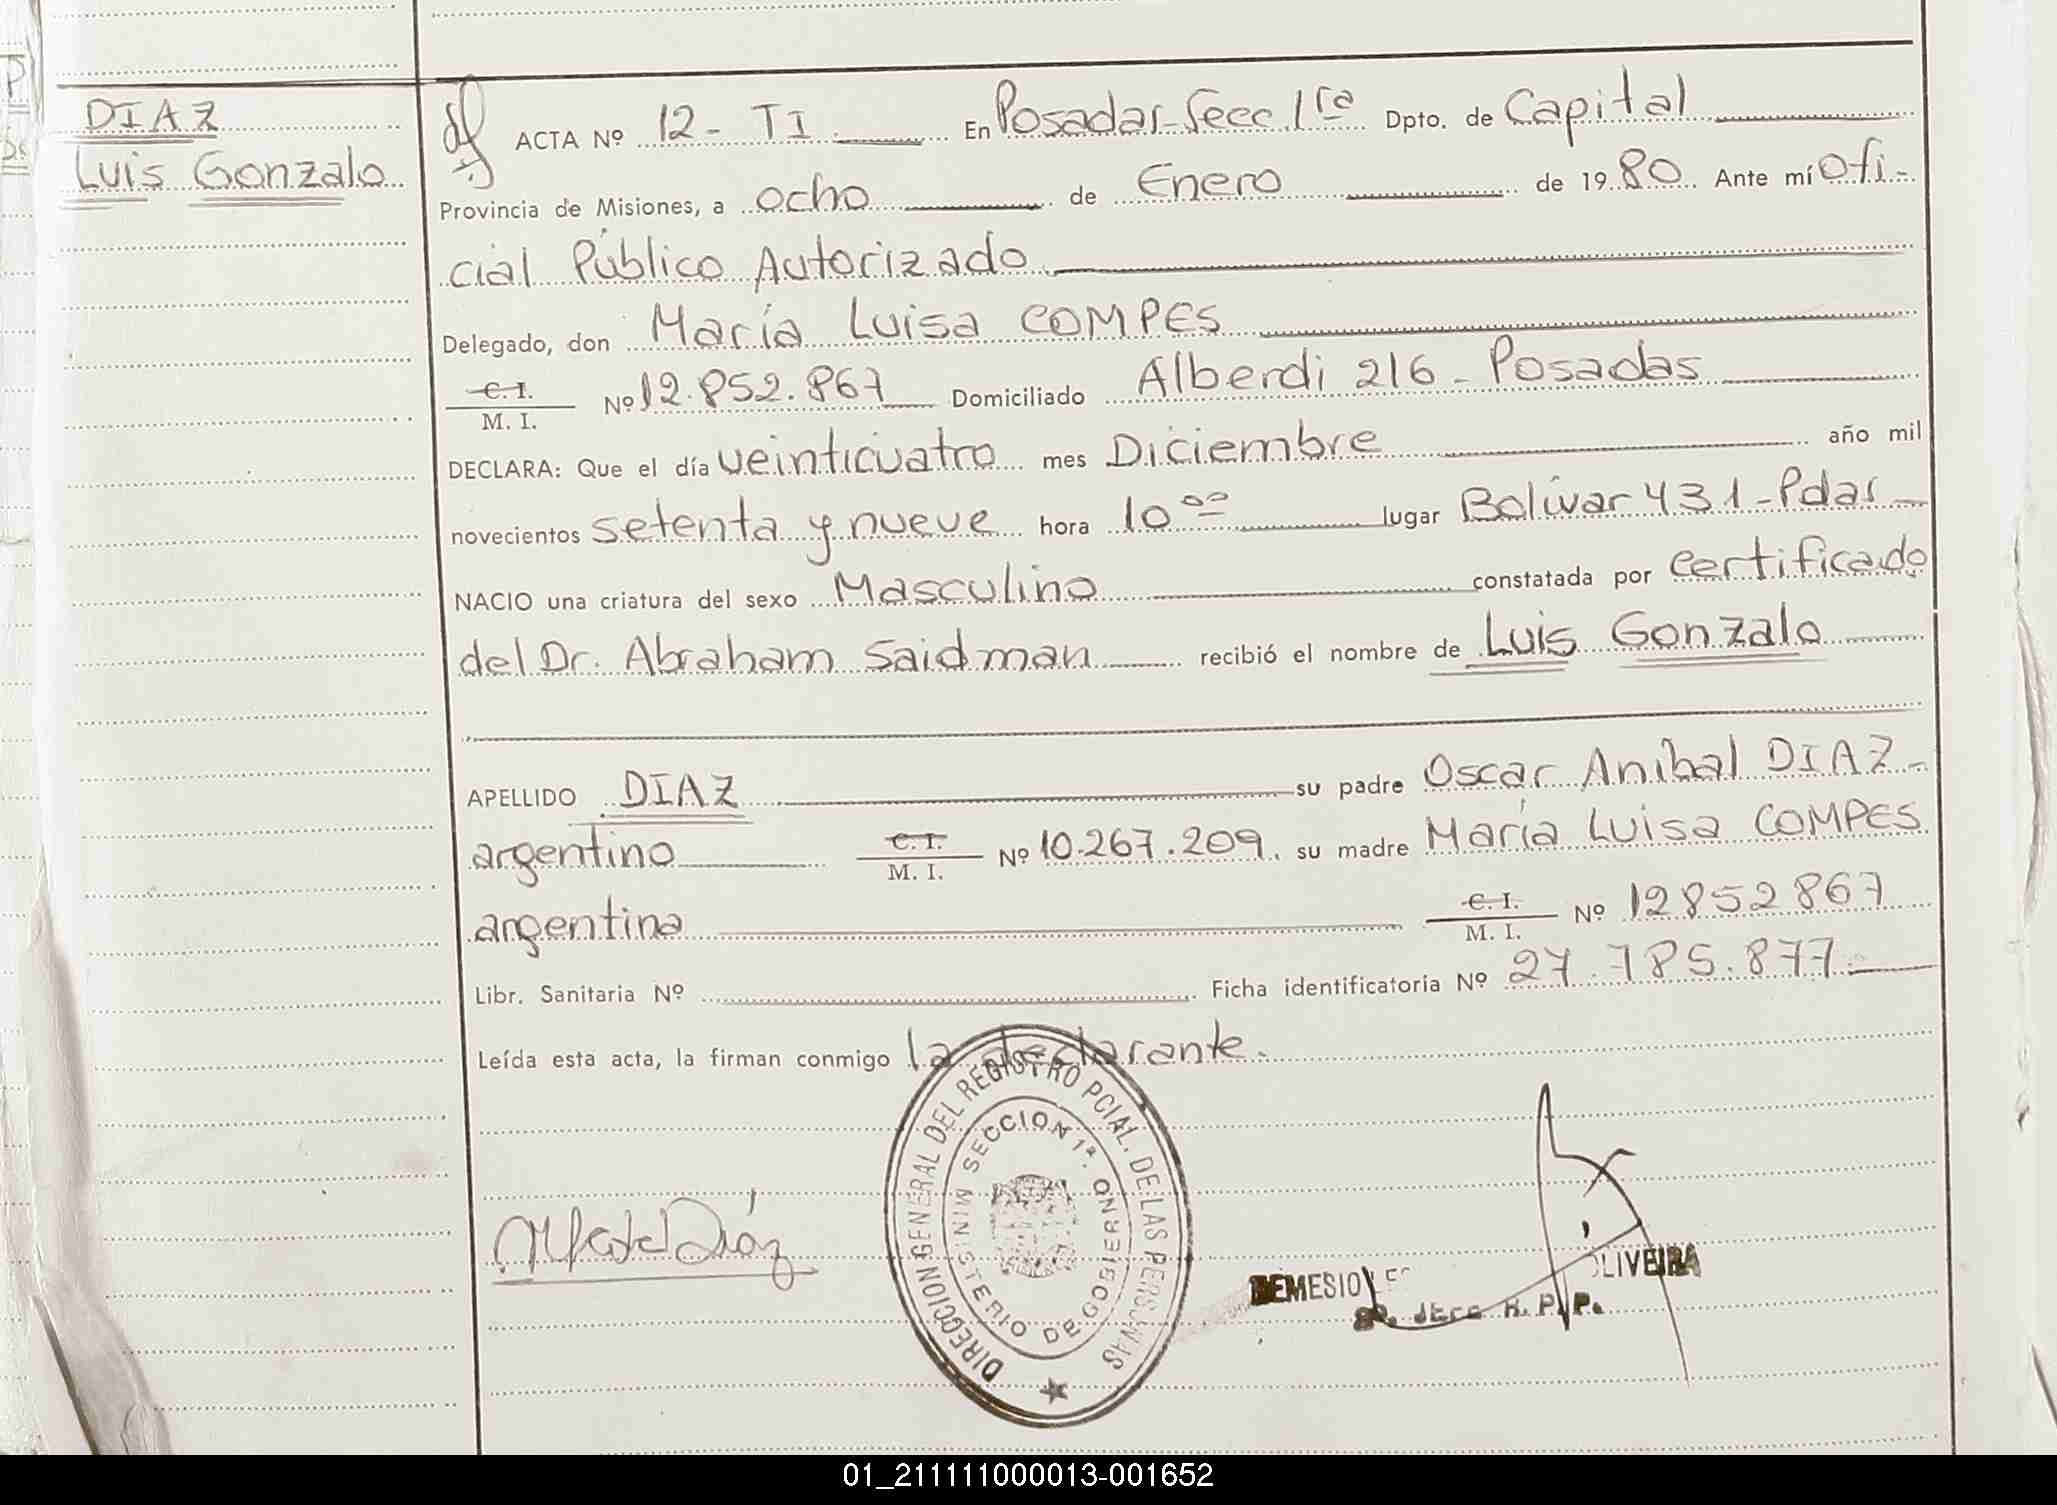 DIAZ
Luis Gonzalo
ACTA Nº 12 - TI En Posadas-Secc. 1ra Dpto. de Capital
Provincia de Misiones, a ocho de Enero de 1980. Ante mí Ofi-
cial Público Autorizado
Delegado, don María Luisa COMPES
C. I.
M. I.
Nº 12.852.867 Domiciliado Alberdi 216 - Posadas
DECLARA: Que el día veinticuatro mes Diciembre año mil
novecientos setenta y nueve hora 10 oo lugar Bolívar 431-Pdas
NACIO una criatura del sexo Masculino constatada por certificado
del Dr. Abraham Saidman recibió el nombre de Luis Gonzalo
APELLIDO DIAZ su padre Oscar Aníbal DIAZ-
argentino C. I. M. I. Nº 10.267.209. su madre María Luisa COMPES
argentina C. I. M. I. Nº 12852867
Libr. Sanitaria Nº Ficha identificatoria Nº 27.785.877.-
Leída esta acta, la firman conmigo la declarante.
DIRECCION GENERAL DEL REGISTRO PCIAL. DE LAS PERSONAS
MINISTERIO DE GOBIERNO
SECCION 1ª.
Díaz
NEMESIO OLIVEIRA
R. P. P.
01_211111000013-001652